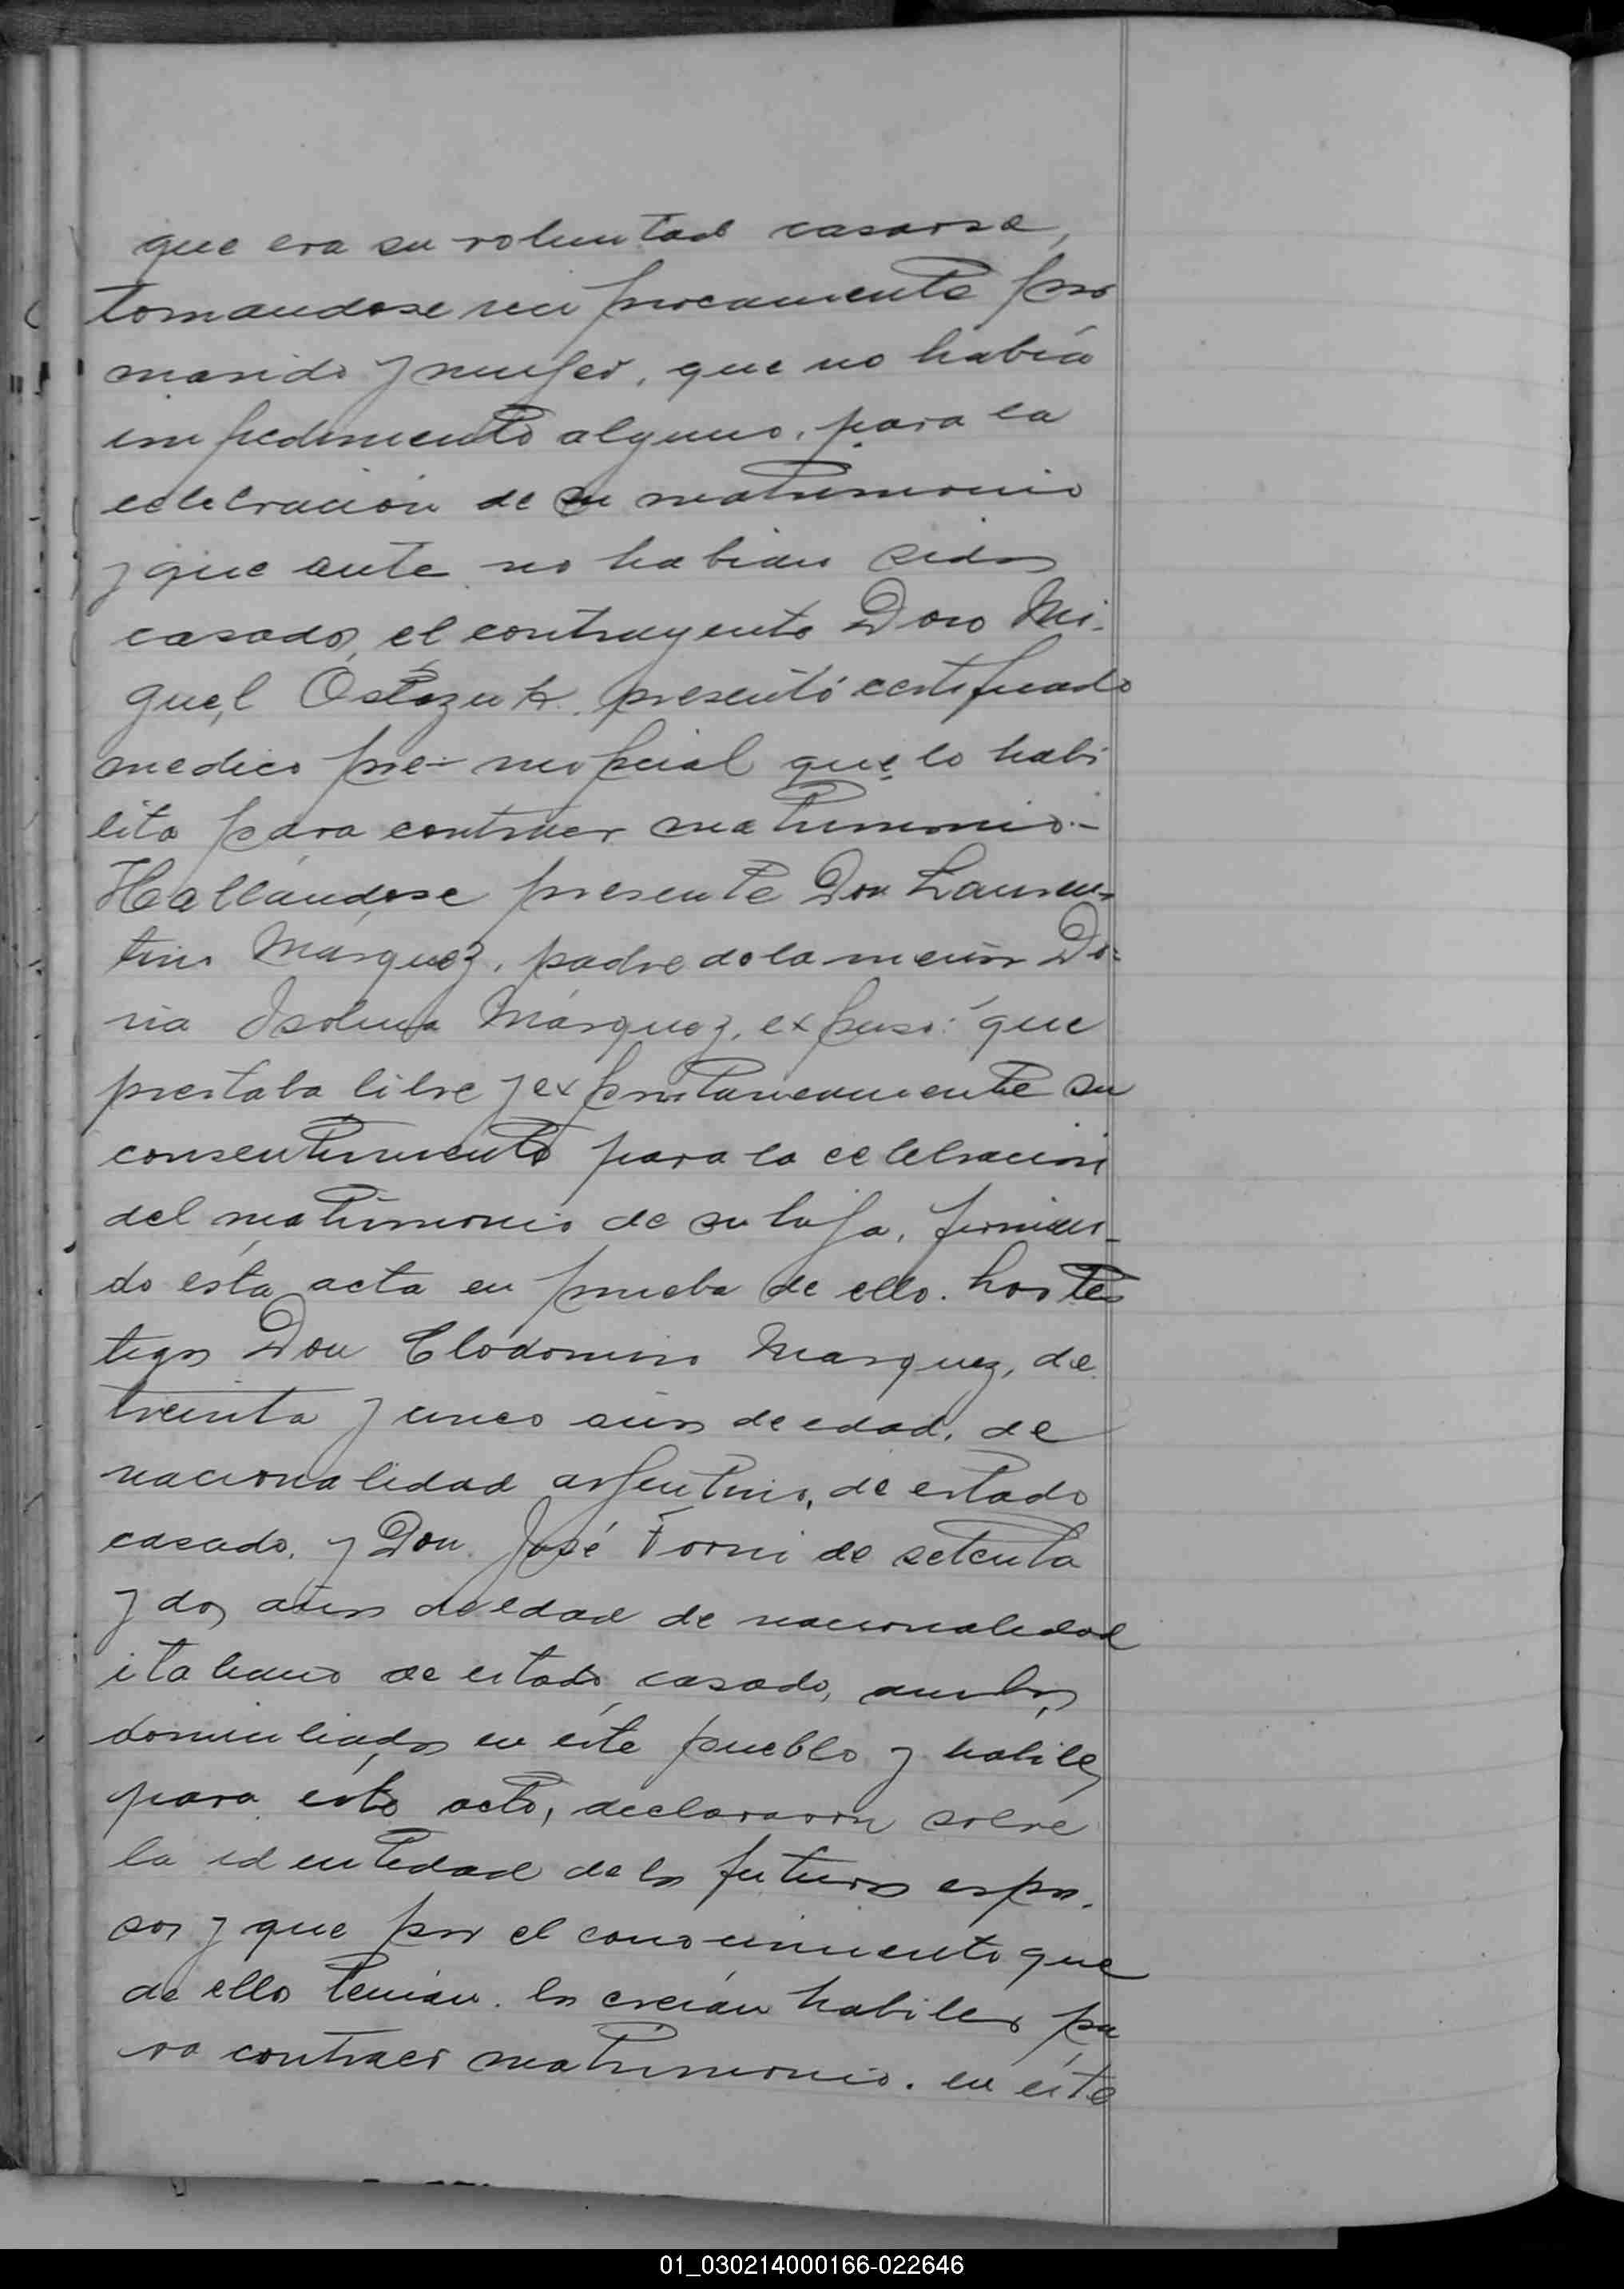 que era su voluntad casarse,
tomandose reciprocamente por
marido y mujer, que no había
impedimento alguno, para la
celebración de su matrimonio
y que ante no habian sidos
casados, el contrayente Don Mi-
guel Ostozuk presentó certificado
medico pre-nupcial que lo habi
lita para contraer matrimonio.-
Hallándose presente Don Lauren-
tino Márquez, padre de la menor Do-
ña Isolina Márquez, expuso: que
prestaba libre y expontaneamente su
consentimiento para la celebración
del matrimonio de su hija, firman-
do ésta acta en prueba de ello. Los tes
tigos Don Clodomiro Marquez, de
treinta y cinco años de edad, de
nacionalidad argentino, de estado
casado, y Don José Forni de setenta
y dos años de edad de nacionalidad
italiano de estado casado, ambos
domiciliados en éste pueblo y habiles
para éste acto, declararon sobre
la identidad de los futuros espo-
sos y que por el conocimiento que
de ellos tenian los creían habiles pa
ra contraer matrimonio. en éste
01_030214000166-022646